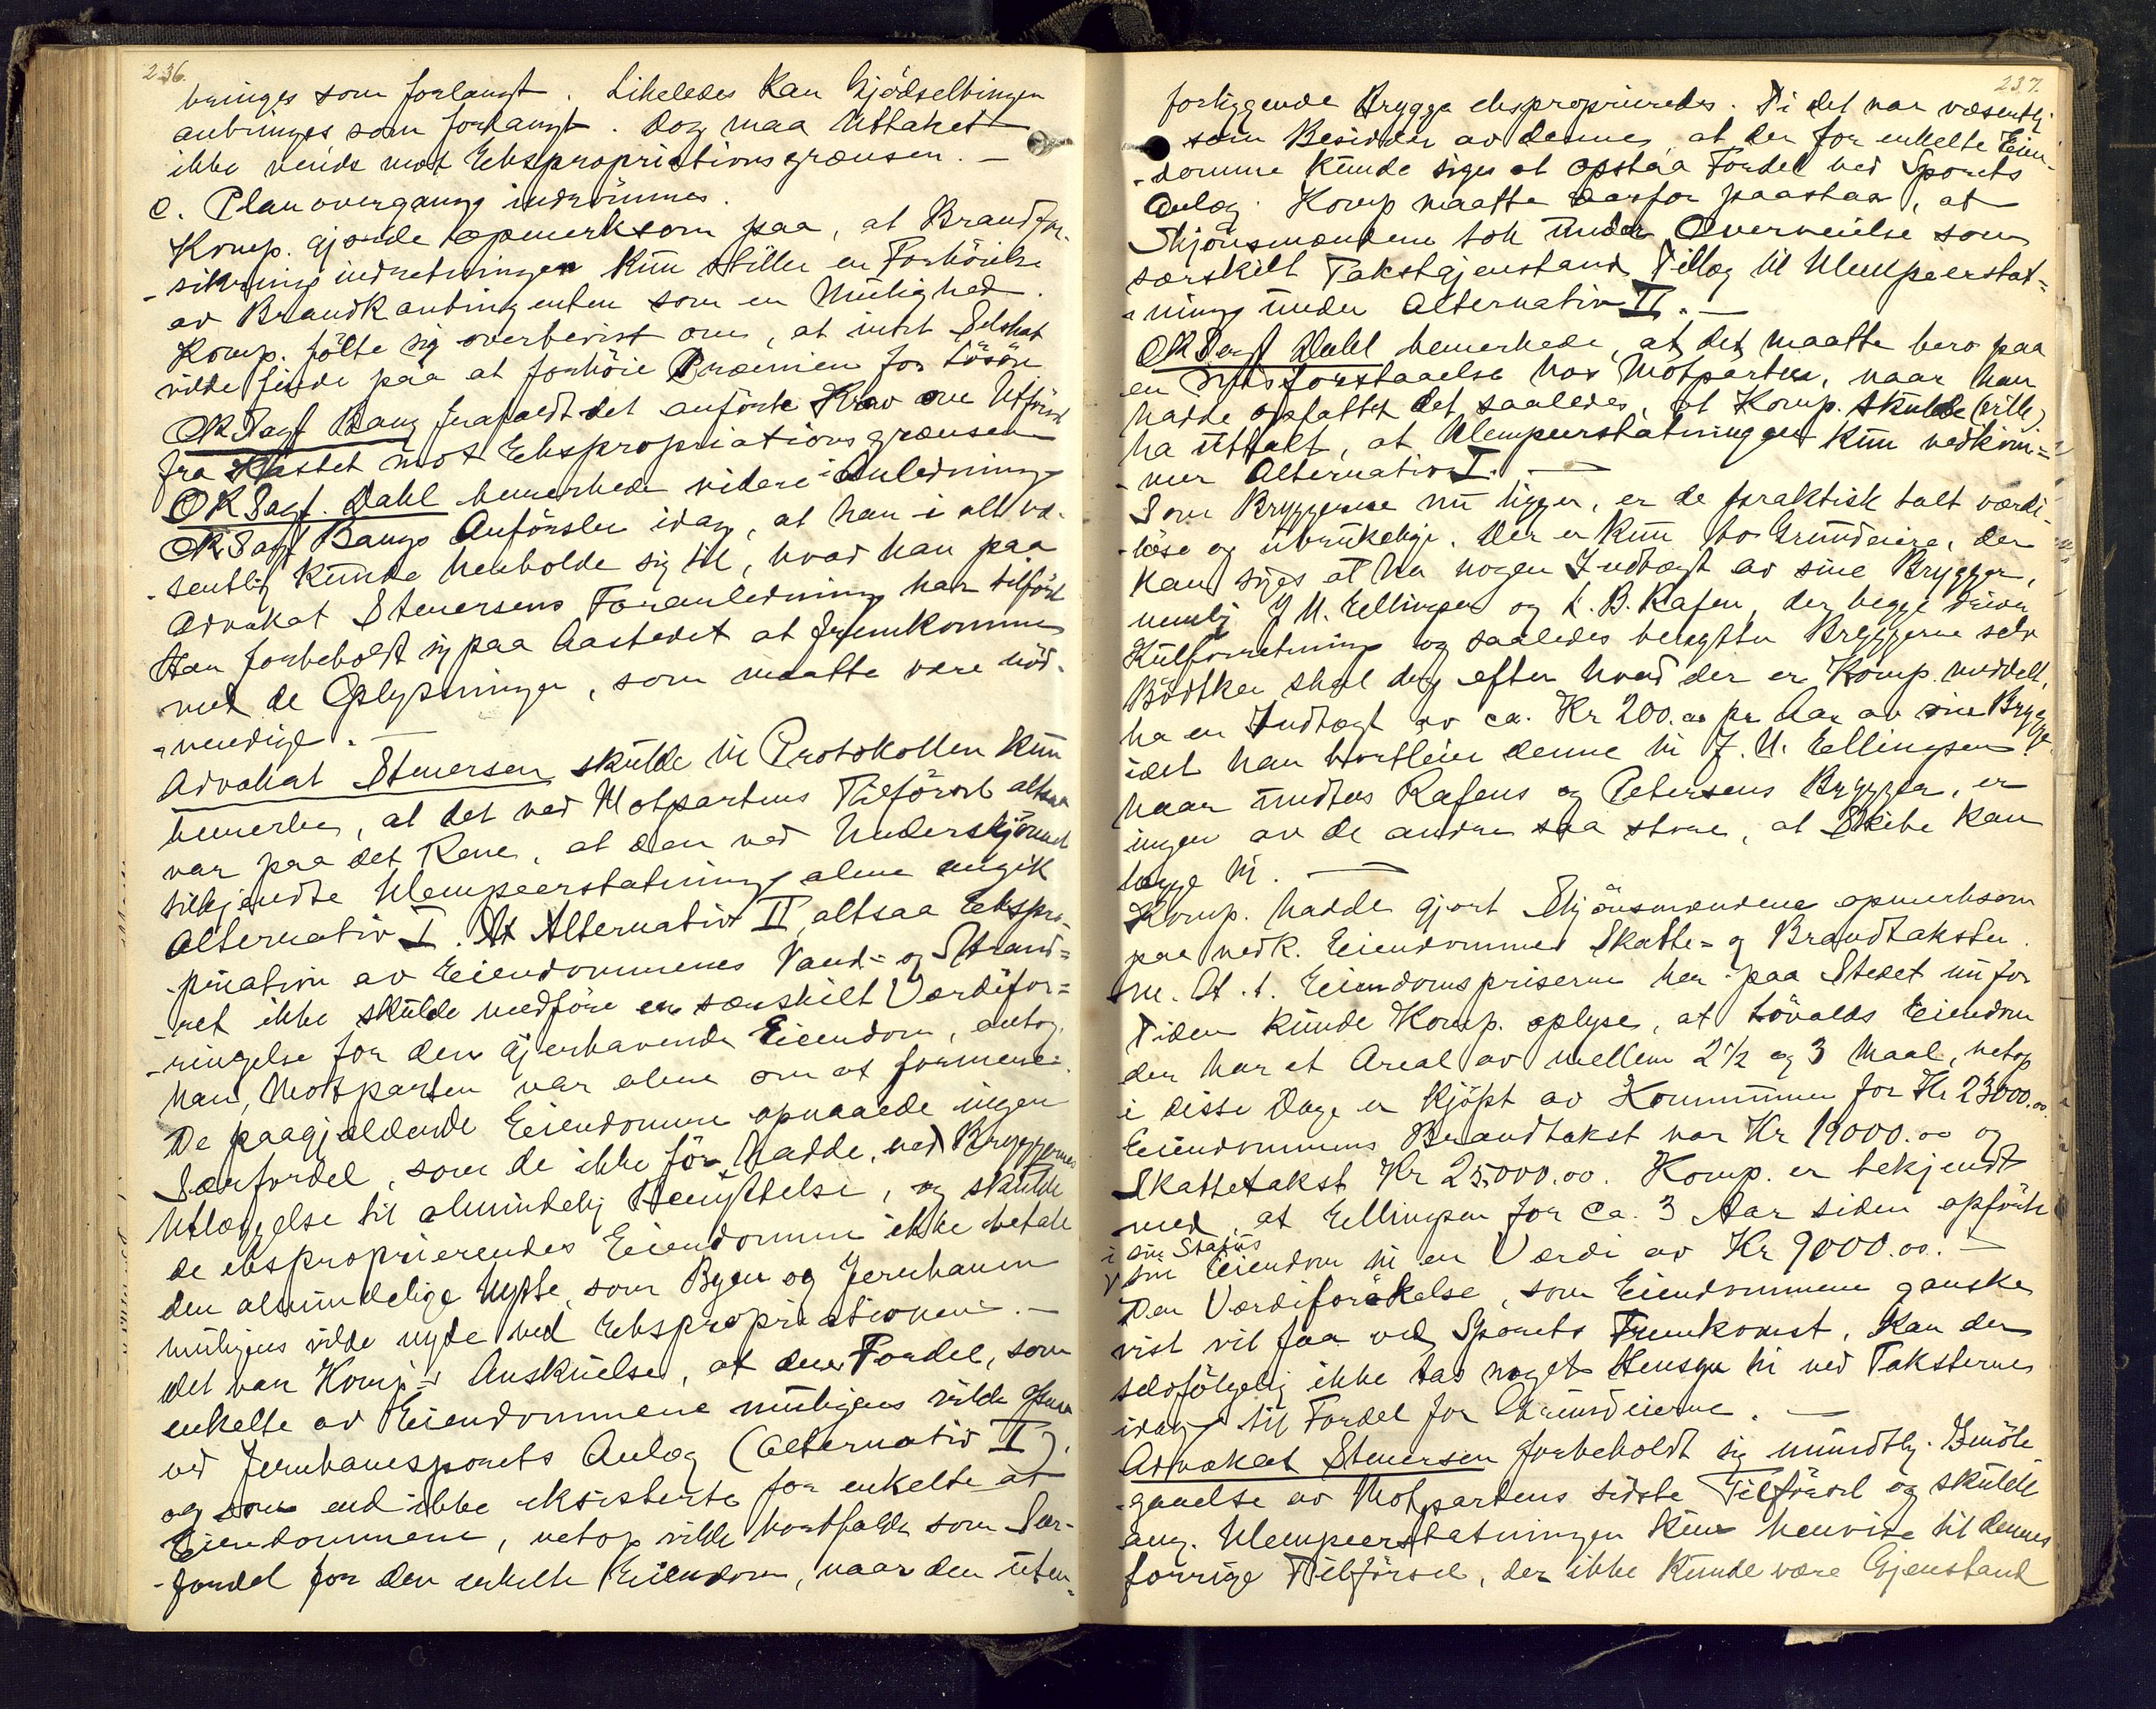 236.
bringes som forlangt. Likeledes kan Gjödselbingen
anbringes som forlangt. Dog maa Uttaket
ikke vende mot Ekspropriationsgrænsen. —
e. Planovergang indrömmes.
Komp. gjorde opmerksom paa, at Brandfor-
-sikringsindretningen kun stiller en Forhöielse
av Brandkontingenten som en Mulighed.
Komp. fölte sig overbevist om, at intet Selskab
vilde finde paa at forhöie Præmien for Lösöre
OKSagf Bang frafaldt det anförte Krav om Utförsel
fra Stedet mot Ekspropriationsgrænsen
OKSagf. Dahl bemerkede videre i Anledning
OKSagf Bangs Anförsler idag, at han i alt væ-
-sentlig kunde henholde sig til, hvad han paa
Advokat Stenersens Foranledning har tilfört
Han forbeholdt sig paa Aastedet at fremkomme
med de Oplysninger, som maatte være nöd-
-vendige. —
Advokat Stenersen skulde til Protokollen kun
bemerke, at det ved Motpartens Tilförsel altsaa
var paa det Rene, at den ved Underskjönnet
tilkjendte Ulempeerstatning alene angik
Alternativ I. At Alternativ II, altsaa Ekspro-
-priation av Eiendommenes Vand- og Strand=
-ret ikke skulde medföre en særskilt Værdifor=
-ringelse for den gjenværende Eiendom, antog
han, Motparten var alene om at formene.
De paagjældende Eiendomme opnaaede ingen
Særfordel, som de ikke för hadde, ved Bryggernes
Utlæggelse til almindelig Benyttelse, og skulde
de eksproprierendes Eiendomme ikke betale
den almindelige Nytte, som Byen og Jernbanen
muligens vilde nyde ved Ekspropriationen. —
Det var Komp's Anskuelse, at den Fordel, som
enkelte av Eiendommene muligens vilde opnaa
ved Jernbanesporets Anlæg (Alternativ I).
og som end ikke eksisterte for enkelte at
Eiendommene, netop vilde bortfalde som Sær-
-fordel for den enkelte Eiendom, naar den uten=
237.
forliggende Brygge eksproprieredes. Ti det var væsentlig
som Besidder av denne, at der for enkelte Eien-
-domme kunde siges at opstaa Fordel ved Sporets
Anlæg. Komp maatte derfor paastaa, at
Skjönsmændene tok under Overveielse som
særskilt Takstgjenstand Tillæg til Ulempeerstat=
-ning under Alternativ II. —
OKSagf Dahl bemerkede, at det maatte bero paa
en Misforstaaelse hos Motparten, naar han
hadde opfattet det saaledes, at Komp. skulde (ville)
ha uttalt, at Ulempeerstatningen kun vedkom=
-mer Alternativ I. —
Som Bryggerne nu ligger, er de praktisk talt værdi-
-löse og ubrukelige. Der er kun to Grundeiere, der
kan siges at ha nogen Indtægt av sine Brygger,
nemlig J. M. Ellingsen og K. B. Rafen, der begge driver
Kulforretning og saaledes benytter Bryggerne selv
Bödtker skal dog efter hvad der er Komp. meddelt,
ha en Indtægt av ca. Kr 200.00 pr Aar av sin Brygge
idet han bortleier denne til J. M. Ellingsen
Naar undtas Rafens og Petersens Brygger, er
ingen av de andre saa store, at Skibe kan
lægge til. —
Komp. hadde gjort Skjönsmændene opmerksom
paa vedk. Eiendommes Skatte- og Brandtakster.
m. H. t. Eiendomspriserne her paa Stedet nu for
Tiden kunde Komp. oplyse, at Lövalds Eiendom
der har et Areal av mellem 2½ og 3 Maal, netop
i disse Dage er kjöpt av Kommunen for Kr 23000.00.
Eiendommens Brandtakst var Kr 19000.00 og
Skattetakst Kr 25.000.00. Komp. er bekjendt
med, at Ellingsen for ca. 3 Aar siden opförte
i sin Status
v sin Eiendom til en Værdi av Kr 9000.00. —
Den Værdiforökelse, som Eiendommene ganske
vist vil faa ved Sporets Fremkomst, kan der
selvfölgelig ikke tas noget Hensyn til ved Taksterne
idag til Fordel for Grundeierne. —
Advokat Stenersen forbeholdt sig mundtlig Imöte-
-gaaelse av Motpartens sidste Tilförsel og skulde
ang. Ulempeerstatningen kun henvise til dennes
forrige Tilförsel, der ikke kunde være Gjenstand